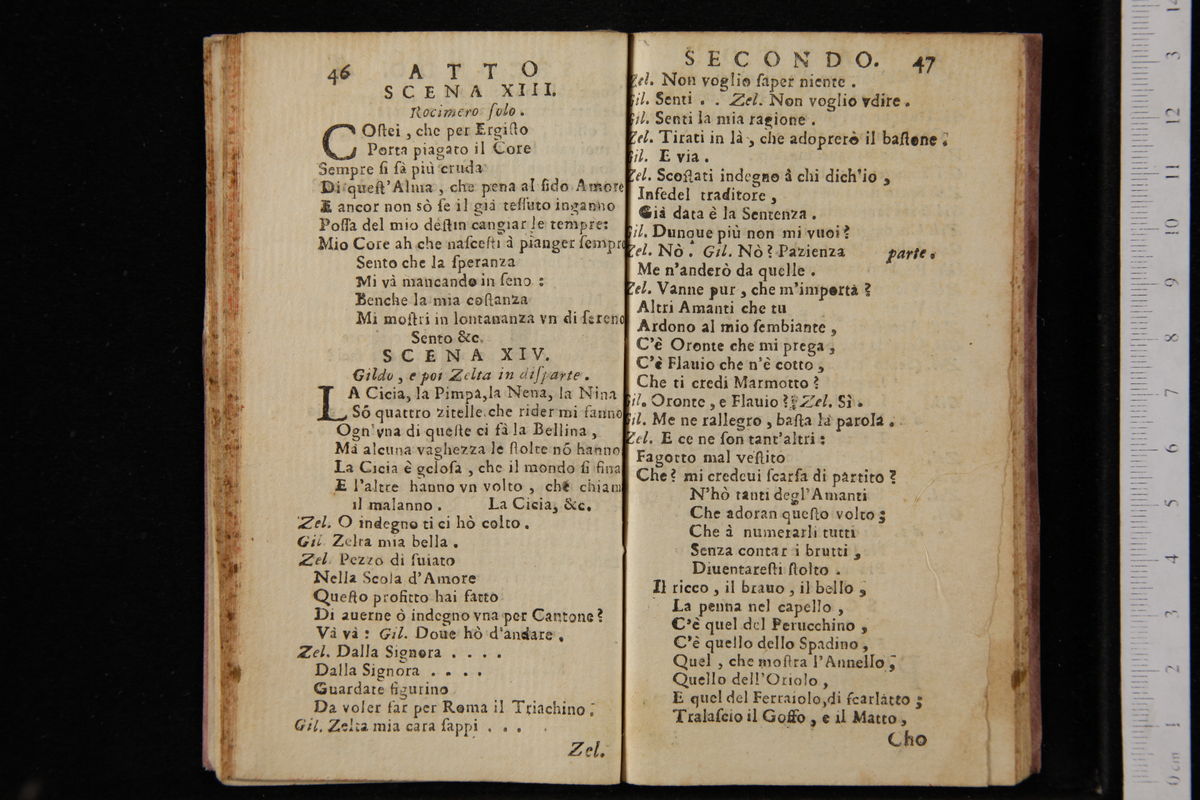 46 ATTO
SCENA XIII.
Rocimero ſolo.
COſtei, che per Ergiſto
Porta piagato il Core
Sempre ſi fà più cruda
Di queſt'Alma, che pena al ſido Amore
E ancor non sò ſe il già teſſuto inganno
Poſſa del mio deſtin cangiar le tempre:
Mio Core ah che naſceſti à pianger ſempre
Sento che la ſperanza
Mi và mancando in ſeno:
Benche la mia coſtanza
Mi moſtri in lontananza vn di ſereno
Sento &c.
SCENA XIV.
Gildo, e poi Zelta in diſparte.
LA Cicia, la Pimpa, la Nena, la Nina
Sõ quattro zitelle che rider mi fanno
Ogn'vna di queſte ci fà la Bellina,
Mà alcuna vaghezza le ſtolte nõ hanno
La Cicia è geloſa, che il mondo ſi fina
E l'altre hanno vn volto, che chiam
il malanno. La Cicia, &c.
Zel. O indegno ti ci hò colto.
Gil. Zelta mia bella.
Zel. Pezzo di ſuiato
Nella Scola d'Amore
Queſto profitto hai fatto
Di auerne ò indegno vna per Cantone?
Và và: Gil. Doue hò d'andare.
Zel. Dalla Signora . . . .
Dalla Signora . . . .
Guardate figurino
Da voler far per Roma il Triachino.
Gil. Zelta mia cara ſappi . . .
Zel.
SECONDO. 47
Zel. Non voglio ſaper niente.
Gil. Senti . . Zel. Non voglio vdire.
Gil. Senti la mia ragione.
Zel. Tirati in là, che adoprerò il baſtone.
Gil. E via.
Zel. Scoſtati indegno à chi dich'io,
Infedel traditore,
Già data è la Sentenza.
Gil. Dunque più non mi vuoi?
Zel. Nò. Gil. Nò? Pazienza parte.
Me n'anderò da quelle.
Zel. Vanne pur, che m'importa?
Altri Amanti che tu
Ardono al mio ſembiante,
C'è Oronte che mi prega,
C'è Flauio che n'è cotto,
Che ti credi Marmotto?
Gil. Oronte, e Flauio? Zel. Sì.
Gil. Me ne rallegro, baſta la parola.
Zel. E ce ne ſon tant'altri:
Fagotto mal veſtito
Che? mi credeui ſcarſa di partito?
N'hò tanti degl'Amanti
Che adoran queſto volto;
Che à numerarli tutti
Senza contar i brutti,
Diuentareſti ſtolto.
Il ricco, il brauo, il bello,
La penna nel capello,
C'è quel del Perucchino,
C'è quello dello Spadino,
Quel, che moſtra l'Annello,
Quello dell'Oriolo,
E quel del Ferraiolo, di ſcarlatto;
Tralaſcio il Goffo, e il Matto,
Cho
14
13
12
11
10
9
8
7
6
5
4
3
2
1
0 cm